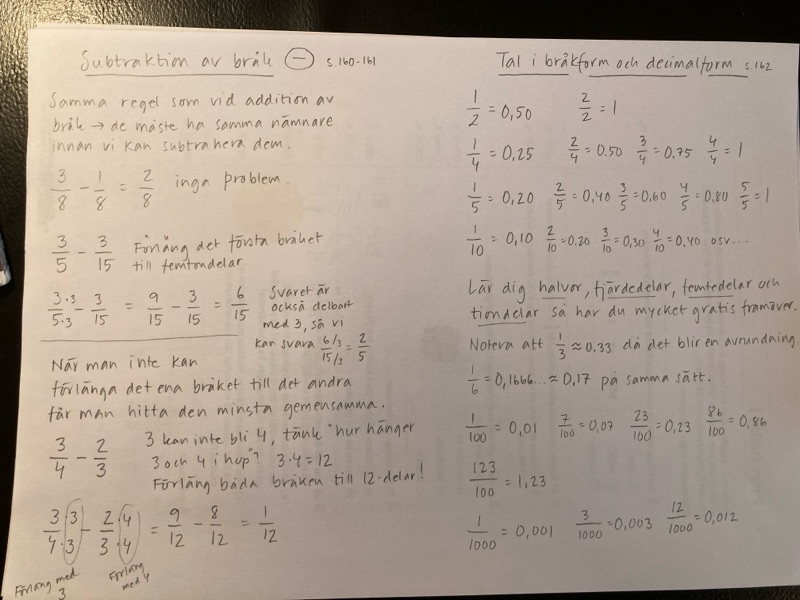 Subtraktion av bråk (−) s.160-161
Samma regel som vid addition av
bråk → de måste ha samma nämnare
innan vi kan subtrahera dem.
3/8 − 1/8 = 2/8 inga problem.
3/5 − 3/15 Förläng det första bråket
till femtondelar
3·3/5·3 − 3/15 = 9/15 − 3/15 = 6/15
Svaret är
också delbart
med 3, så vi
kan svara 6/3 / 15/3 = 2/5
När man inte kan
förlänga det ena bråket till det andra
får man hitta den minsta gemensamma.
3/4 − 2/3
3 kan inte bli 4, tänk "hur hänger
3 och 4 ihop"? 3·4=12
Förläng båda bråken till 12-delar!
3·3/4·3 − 2·4/3·4 = 9/12 − 8/12 = 1/12
Förläng med
3
Förläng
med 4
Tal i bråkform och decimalform s.162
1/2 = 0,50 2/2 = 1
1/4 = 0,25 2/4 = 0.50 3/4 = 0,75 4/4 = 1
1/5 = 0,20 2/5 = 0,40 3/5 = 0,60 4/5 = 0,80 5/5 = 1
1/10 = 0,10 2/10 = 0.20 3/10 = 0,30 4/10 = 0,40 osv...
Lär dig halvor, fjärdedelar, femtedelar och
tiondelar så har du mycket gratis framöver.
Notera att 1/3 ≈ 0.33 då det blir en avrundning.
1/6 = 0,1666... ≈ 0,17 på samma sätt.
1/100 = 0,01 7/100 = 0,07 23/100 = 0,23 86/100 = 0,86
123/100 = 1,23
1/1000 = 0,001 3/1000 = 0,003 12/1000 = 0,012